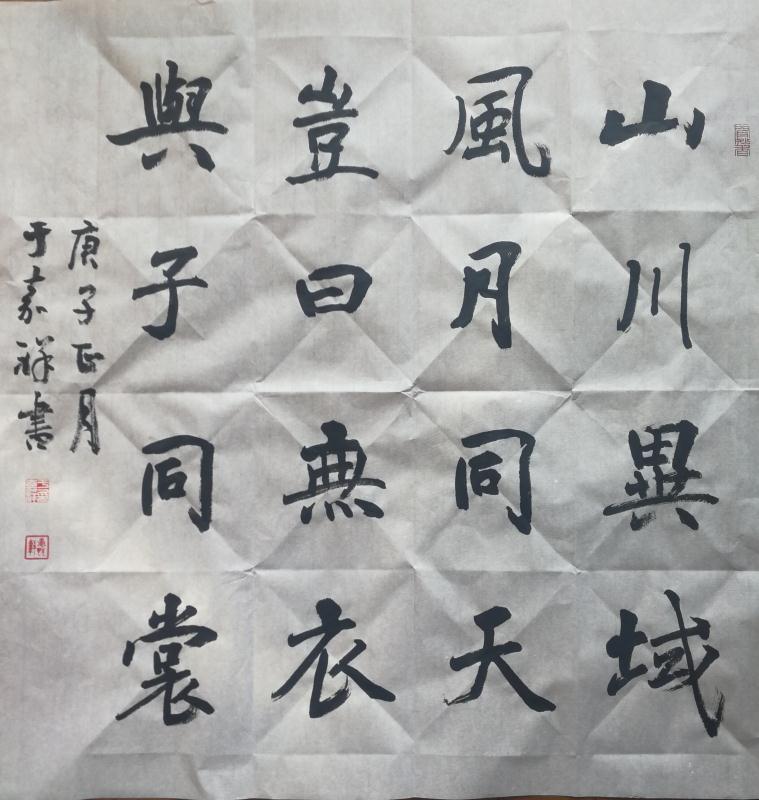 山川異域
風月同天
豈曰無衣
與子同裳
庚子正月
于嘉祥書